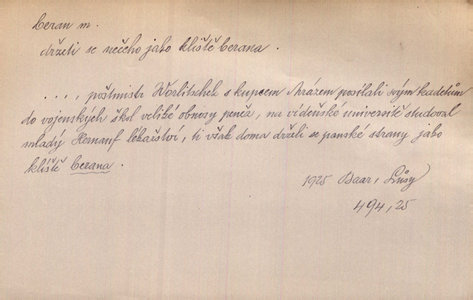 beran m.
držeti se něčeho jako klíště berana.
...., poštmistr Worlitschek s kupcem Mrázem posílali svým kadetům
do vojenských škol veliké obnosy peněz, na vídeňské universitě studoval
mladý Hernauf lékařství, ti však doma drželi se panské strany jako
klíště berana.
1925 Baar, Lůsy
494,25